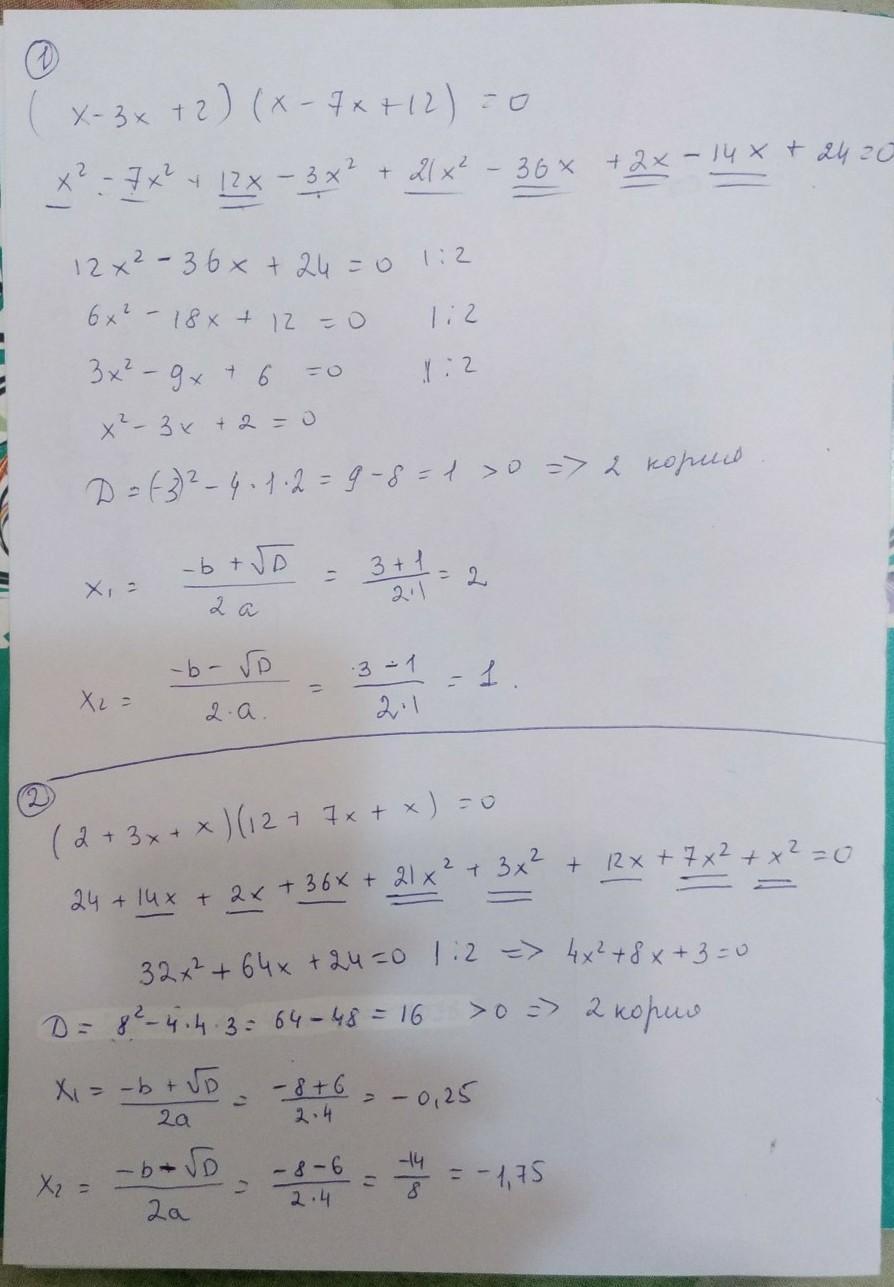 1
(x - 3x + 2)(x - 7x + 12) = 0
x² - 7x² + 12x - 3x² + 21x² - 36x + 2x - 14x + 24 = 0
12x² - 36x + 24 = 0 | : 2
6x² - 18x + 12 = 0 | : 2
3x² - 9x + 6 = 0 | : 2
x² - 3x + 2 = 0
D = (-3)² - 4 · 1 · 2 = 9 - 8 = 1 > 0 => 2 корня
x₁ = (-b + √D)/(2a) = (3 + 1)/(2·1) = 2
x₂ = (-b - √D)/(2·a) = (3 - 1)/(2·1) = 1.
2
(2 + 3x + x)(12 + 7x + x) = 0
24 + 14x + 2x + 36x + 21x² + 3x² + 12x + 7x² + x² = 0
32x² + 64x + 24 = 0 | : 2 => 4x² + 8x + 3 = 0
D = 8² - 4·4·3 = 64 - 48 = 16 > 0 => 2 корня
x₁ = (-b + √D)/(2a) = (-8 + 6)/(2·4) = -0,25
x₂ = (-b - √D)/(2a) = (-8 - 6)/(2·4) = -14/8 = -1,75